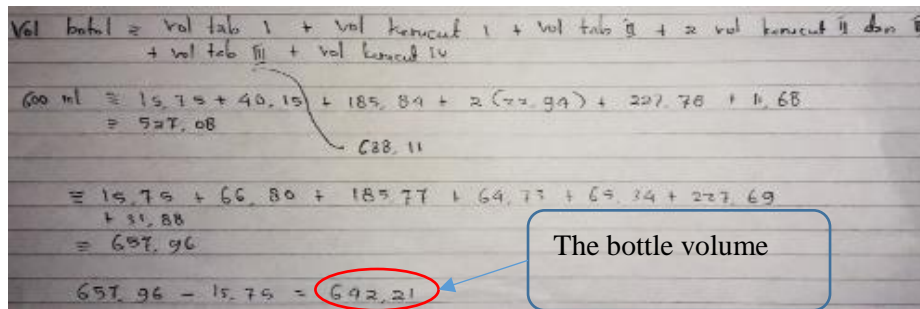 Vol botol = vol tab I + vol kerucut I + vol tab II + 2 vol kerucut II dan III
+ vol tab III + vol kerucut IV
600 ml = 15,75 + 40,15 + 185,84 + 2 (22,94) + 227,78 + 11,68
= 527,08
638,11
= 15,75 + 66,80 + 185,77 + 64,73 + 65,34 + 227,69
+ 31,88
= 657,96
657,96 - 15,75 = 642,21
The bottle volume